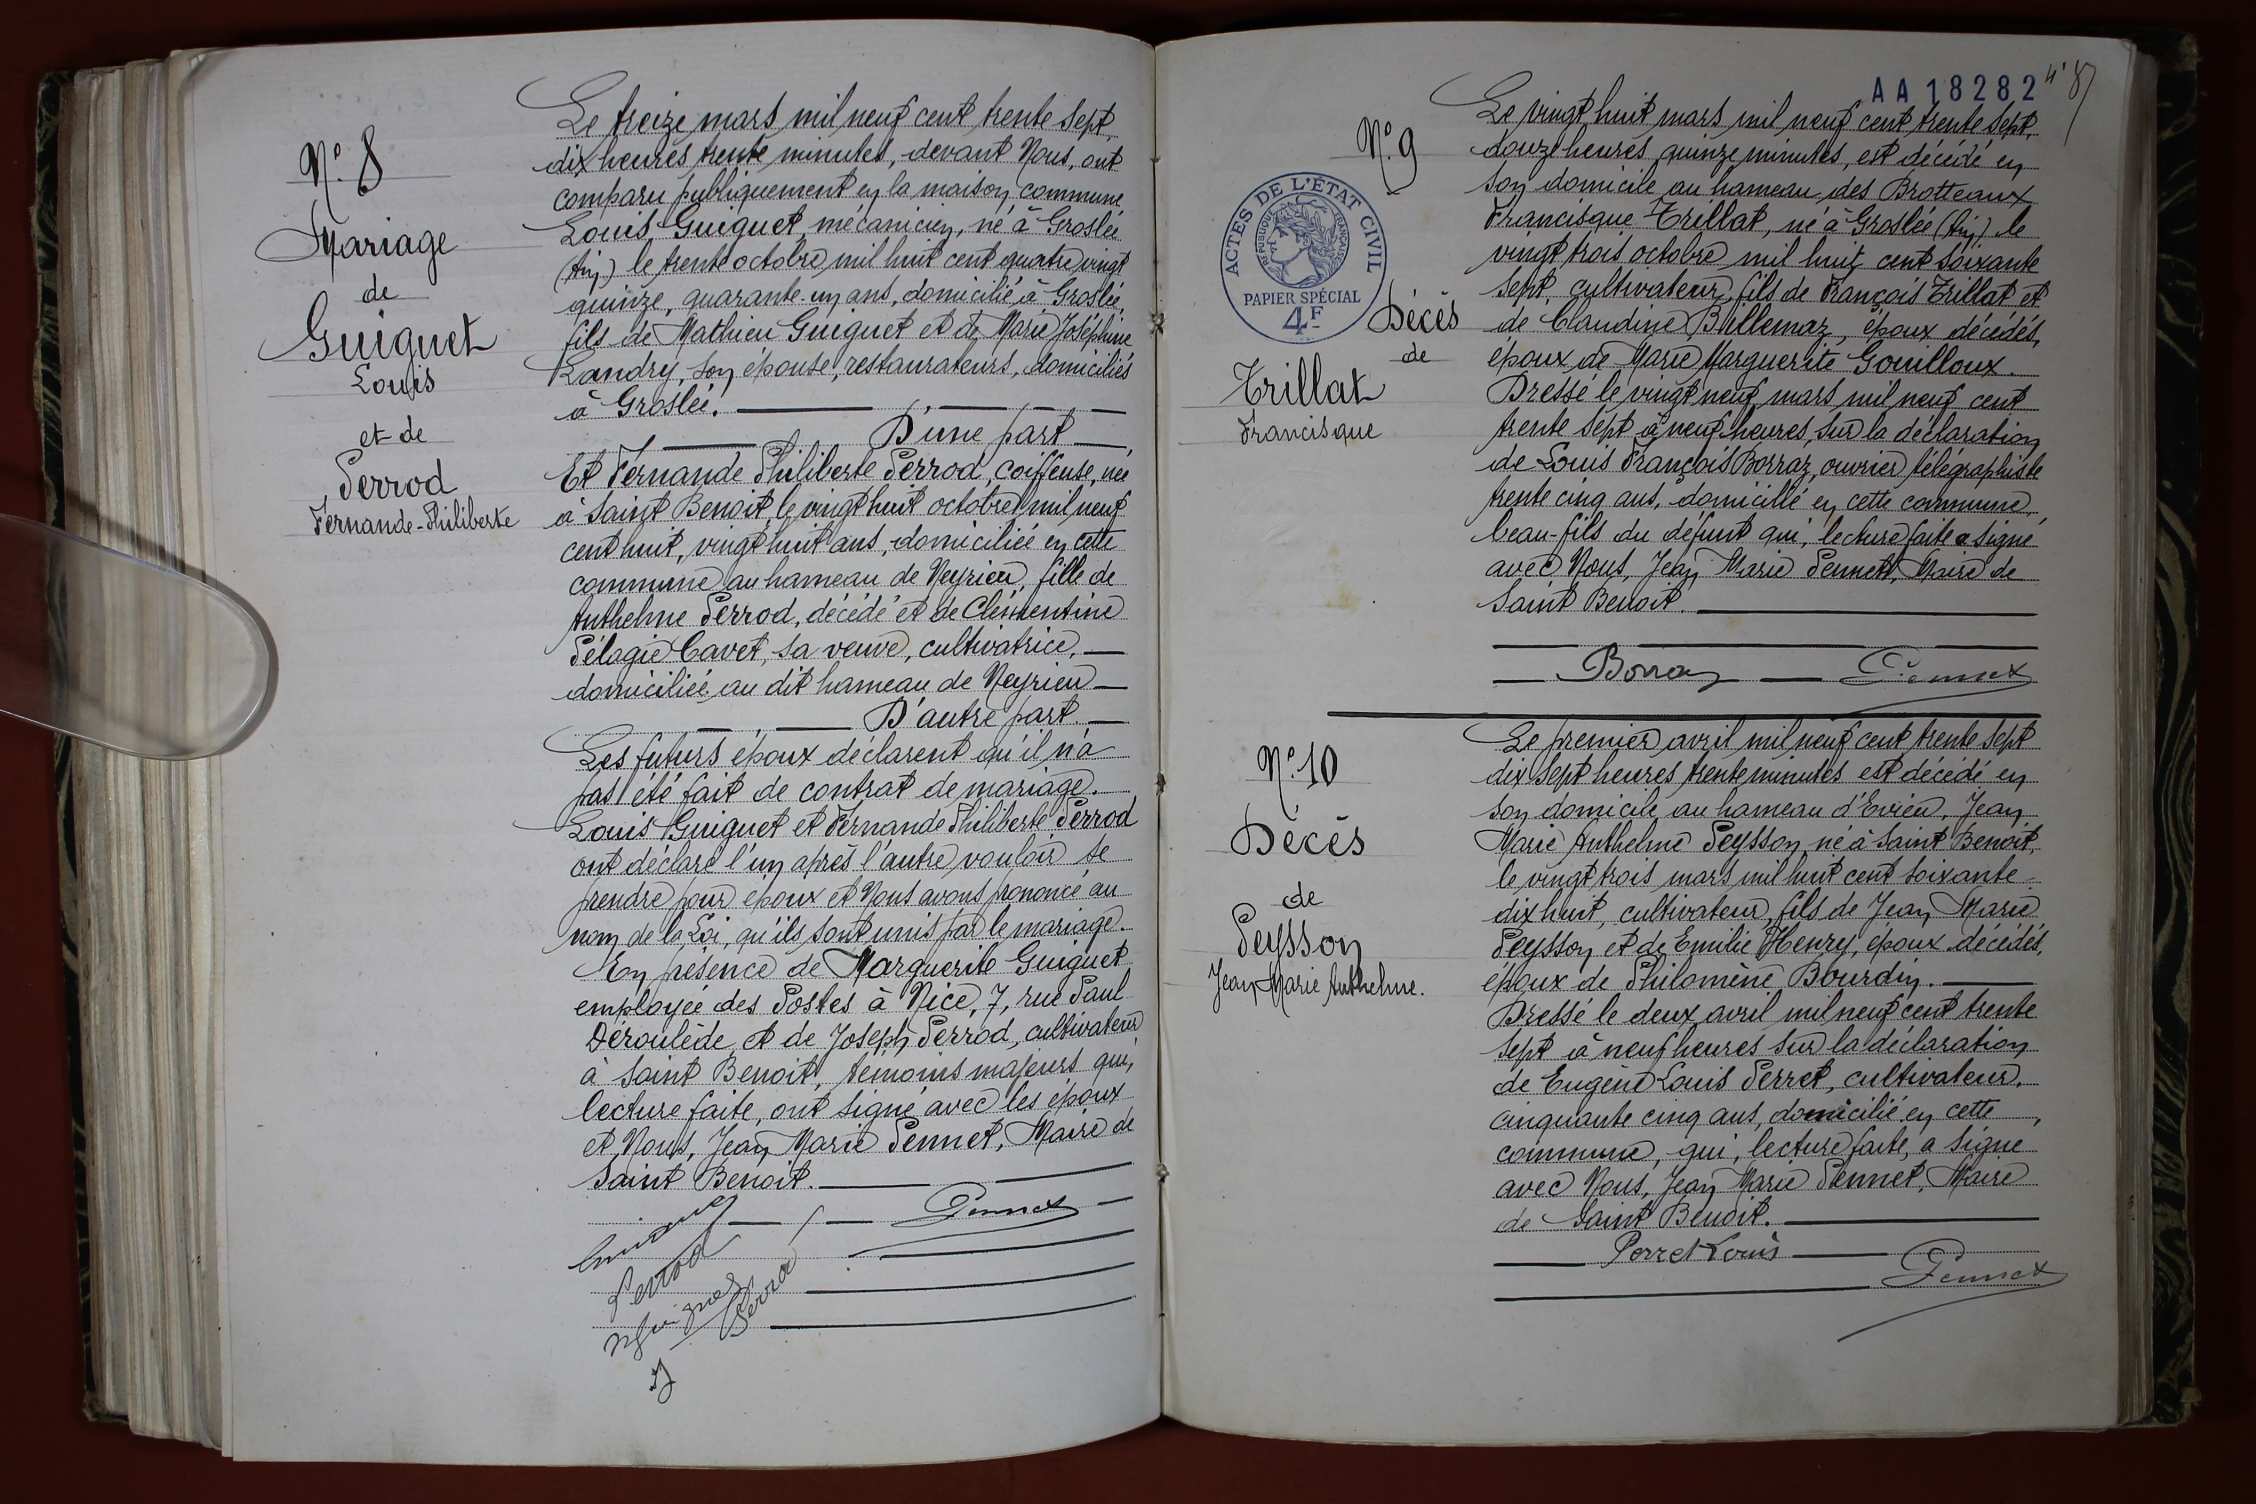 N° 8
Mariage
de
Guiguet
Louis
et de
Perrod
Fernande-Philiberte
Le treize mars mil neuf cent trente sept
dix heures trente minutes, devant Nous, ont
comparu publiquement en la maison commune
Louis Guiguet, mécanicien, né à Groslée
(Ain) le trente octobre mil huit cent quatre vingt
quinze, quarante-un ans, domicilié à Groslée,
fils de Mathieu Guiguet et de Marie Joséphine
Landry, son épouse, restaurateurs, domiciliés
à Groslée.
D'une part
Et Fernande Philiberte Perrod, coiffeuse, née
à Saint Benoit, le vingt huit octobre mil neuf
cent huit, vingt huit ans, domiciliée en cette
commune au hameau de Neyrieu, fille de
Anthelme Perrod, décédé et de Clémentine
Pélagie Cavet, sa veuve, cultivatrice,
domiciliée au dit hameau de Neyrieu
D'autre part.
Les futurs époux déclarent qu'il n'a
pas été fait de contrat de mariage.
Louis Guiguet et Fernande Philiberte Perrod
ont déclaré l'un après l'autre vouloir se
prendre pour époux et Nous avons prononcé au
nom de la Loi, qu'ils sont unis par le mariage.
En présence de Marguerite Guiguet
employée des Postes à Nice, 7, rue Paul
Déroulède et de Joseph Perrod, cultivateur
à Saint Benoit, témoins majeurs qui,
lecture faite, ont signé avec les époux
et Nous, Jean Marie Pennet, Maire de
Saint Benoit.
Guiguet
Pennet
Perrod
Guiguet
Perrod
AA 18282
N° 9
ACTES DE L'ÉTAT CIVIL
RÉPUBLIQUE FRANÇAISE
PAPIER SPÉCIAL
4F
Décès
de
Trillat
Francisque
Le vingt huit mars mil neuf cent trente sept,
douze heures quinze minutes, est décédé en
son domicile au hameau des Brotteaux
Francisque Trillat, né à Groslée (Ain) le
vingt trois octobre mil huit cent soixante
sept, cultivateur, fils de François Trillat et
de Claudine Bullemaz, époux décédés,
époux de Marie Marguerite Gouilloux.
Dressé le vingt neuf mars mil neuf cent
trente sept à neuf heures, sur la déclaration
de Louis François Borraz, ouvrier télégraphiste
trente cinq ans, domicilié en cette commune,
beau-fils du défunt qui, lecture faite a signé
avec Nous, Jean Marie Pennet, Maire de
Saint Benoit.
Borraz
Pennet
N° 10
Décès
de
Peysson
Jean Marie Anthelme.
Le premier avril mil neuf cent trente sept
dix sept heures trente minutes est décédé en
son domicile au hameau d'Evieu, Jean
Marie Anthelme Peysson, né à Saint Benoit,
le vingt trois mars mil huit cent soixante-
dix huit, cultivateur, fils de Jean Marie
Peysson et de Emilie Henry, époux décédés,
époux de Philomène Bourdin.
Dressé le deux avril mil neuf cent trente
sept à neuf heures sur la déclaration
de Eugène Louis Perret, cultivateur.
cinquante cinq ans, domicilié en cette
commune, qui, lecture faite, a signé
avec Nous, Jean Marie Pennet, Maire
de Saint Benoit.
Perret Louis
Pennet